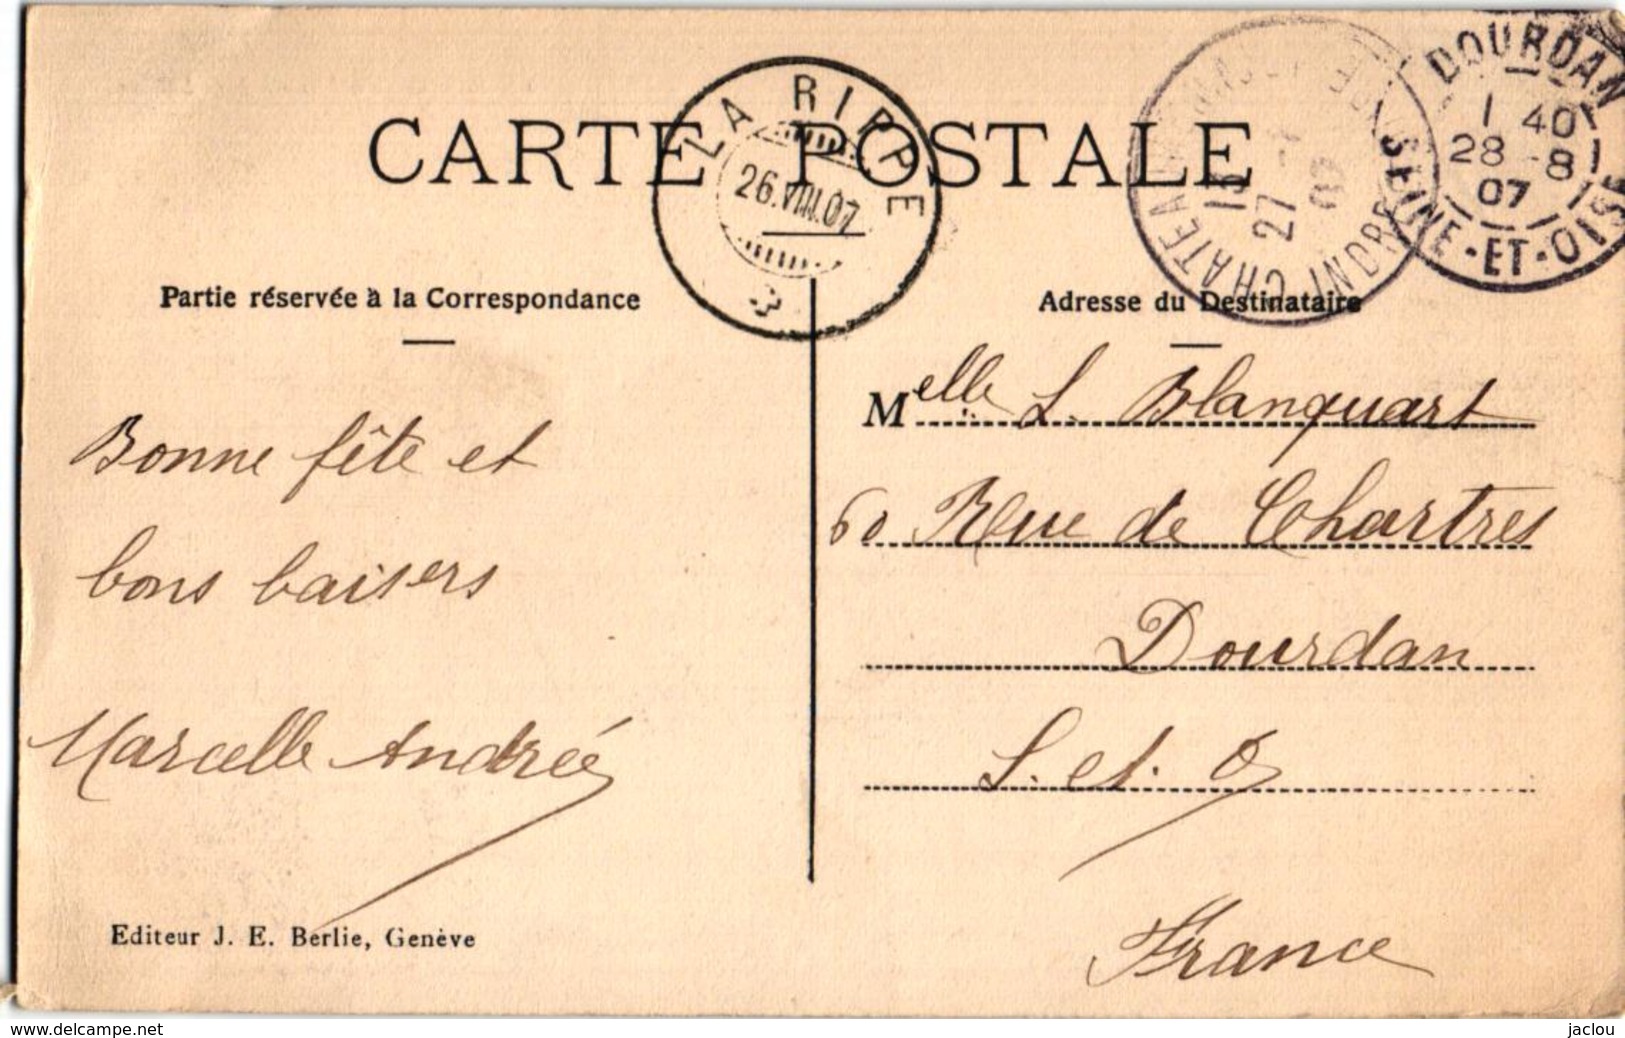 CARTE POSTALE
LA RIPPE
26.VIII.07
DOURDAN
1 40
28 -8
07
SEINE-ET-OISE
27
07
Partie réservée à la Correspondance
Adresse du Destinataire
Bonne fête et
bons baisers
Marcelle Andrée
Melle L. Blanquart
60 Rue de Chartres
Dourdan
S. et. O
France
Editeur J. E. Berlie, Genève
www.delcampe.net
jaclou